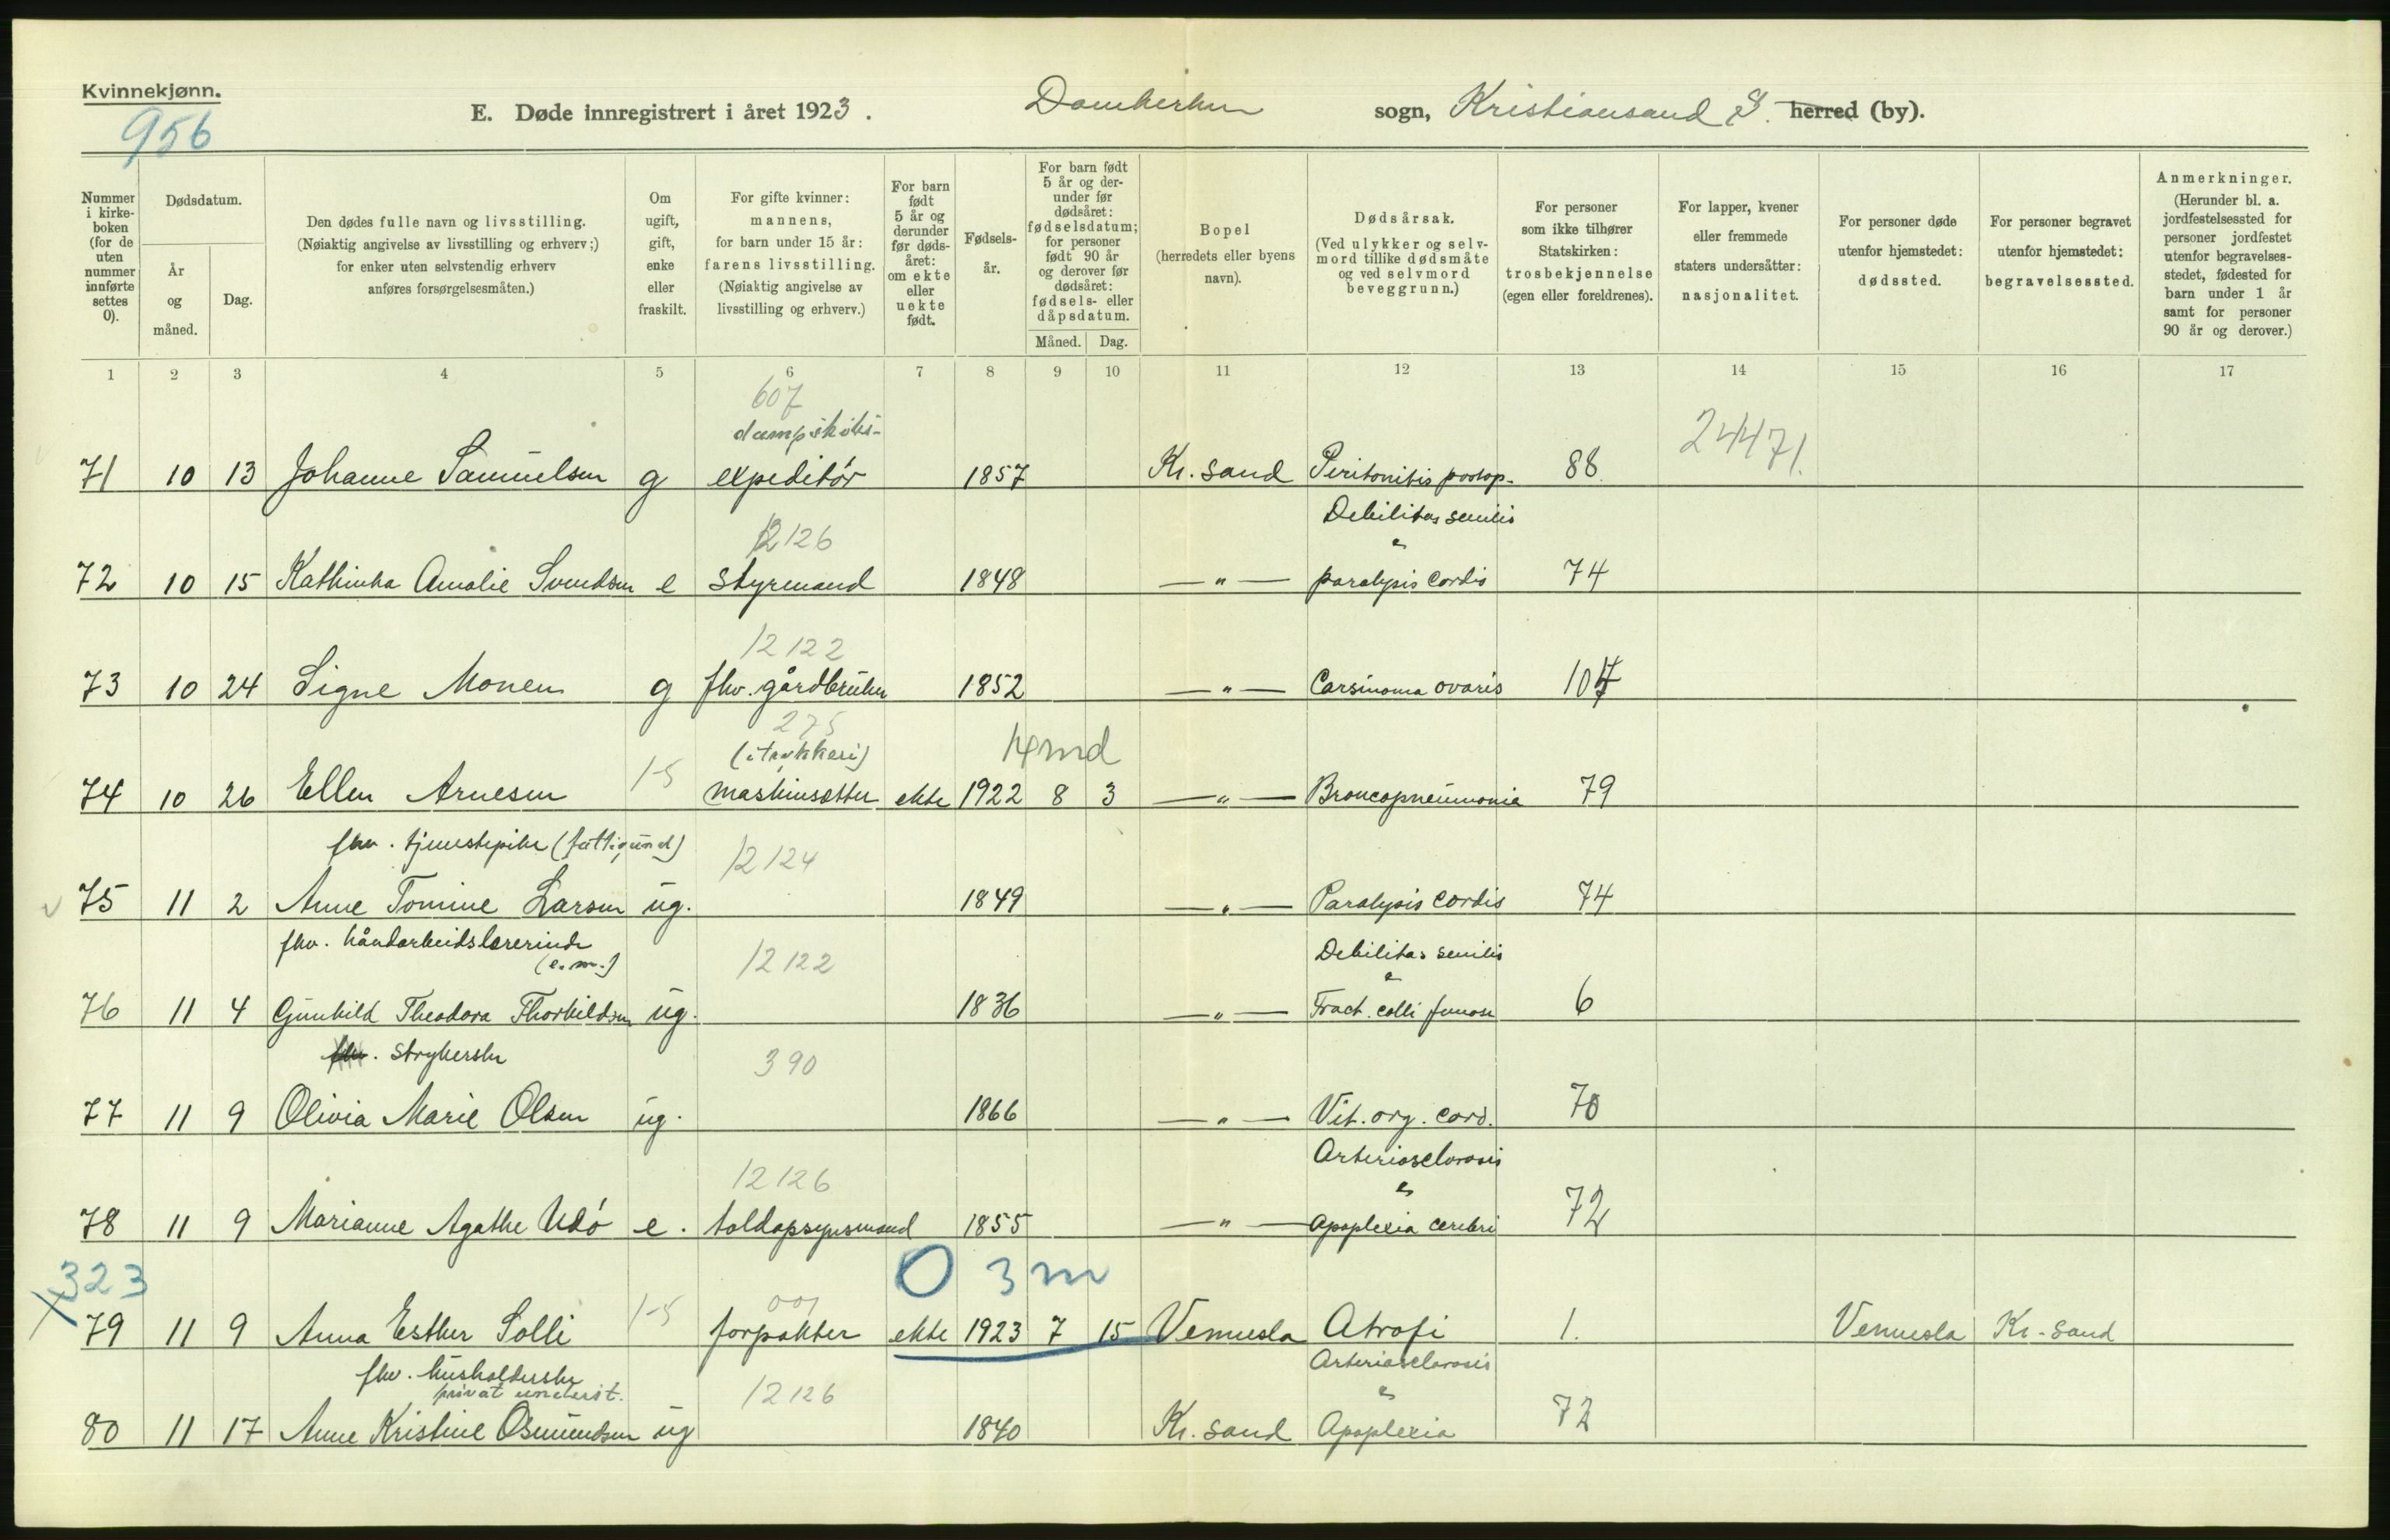 Kvinnekjønn.
956
E. Døde innregistrert i året 1923. Domkirken sogn, Kristiansand S. herred (by).
Nummer i kirke-boken (for de uten nummer innførte settes 0).
Dødsdatum.
År og måned.
Dag.
Den dødes fulle navn og livsstilling.
(Nøiaktig angivelse av livsstilling og erhverv;)
for enker uten selvstendig erhverv
anføres forsørgelsesmåten.)
Om ugift, gift, enke eller fraskilt.
For gifte kvinner:
mannens,
for barn under 15 år:
farens livsstilling.
(Nøiaktig angivelse av
livsstilling og erhverv.)
For barn født 5 år og derunder før døds-året: om ekte eller uekte født.
Fødsels-år.
For barn født 5 år og der-under før dødsåret: fødselsdatum; for personer født 90 år og derover før dødsåret: fødsels- eller dåpsdatum.
Måned. Dag.
Bopel
(herredets eller byens navn).
Dødsårsak.
(Ved ulykker og selv-mord tillike dødsmåte og ved selvmord beveggrunn.)
For personer som ikke tilhører Statskirken: trosbekjennelse (egen eller foreldrenes).
For lapper, kvener eller fremmede staters undersåtter: nasjonalitet.
For personer døde utenfor hjemstedet: dødssted.
For personer begravet utenfor hjemstedet: begravelsessted.
Anmerkninger.
(Herunder bl. a. jordfestelsessted for personer jordfestet utenfor begravelses-stedet, fødested for barn under 1 år samt for personer 90 år og derover.)
1 2 3 4 5 6 7 8 9 10 11 12 13 14 15 16 17
607
dampskibs-
24471.
71 10 13 Johanne Samuelsen g expeditør 1857 Kr. sand Peritonitis postop. 88
12126 Debilitas senilis
&
72 10 15 Kathinka Amalie Svendsen e styrmand 1848 —"— paralysis cordis 74
12122
73 10 24 Signe Monen g fhv. gårdbruker 1852 —"— Carsinoma ovaris 107
275
(i trykkeri) 14 md
74 10 26 Ellen Arnesen 1-5 maskinsætter ekte 1922 8 3 —"— Broncopneumonia 79
fhv. tjenestepike (fattigund) 12124
75 11 2 Anne Tomine Larsen ug. 1849 —"— Paralysis cordis 74
fhv. håndarbeidslærerinde Debilitas senilis
(e.m.) 12122 &
76 11 4 Gunhild Theodora Thorkildsen ug. 1836 —"— Fract. colli femoris 6
fhv. strykerske 390
77 11 9 Olivia Marie Olsen ug. 1866 —"— Vit. org. cord. 70
12126 Arteriosclerosis
&
78 11 9 Marianne Agathe Udø e. toldopsynsmand 1855 —"— apoplexia cerebri 72
323 0 3 m
001
79 11 9 Anna Esther Solli 1-5 forpakter ekte 1923 7 15 Vennesla Atrofi 1. Vennesla Kr. sand
fhv. husholderske Arteriosclerosis
privat underst. 12126 &
80 11 17 Anne Kristine Osmundsen ug 1840 Kr. sand Apoplexia 72